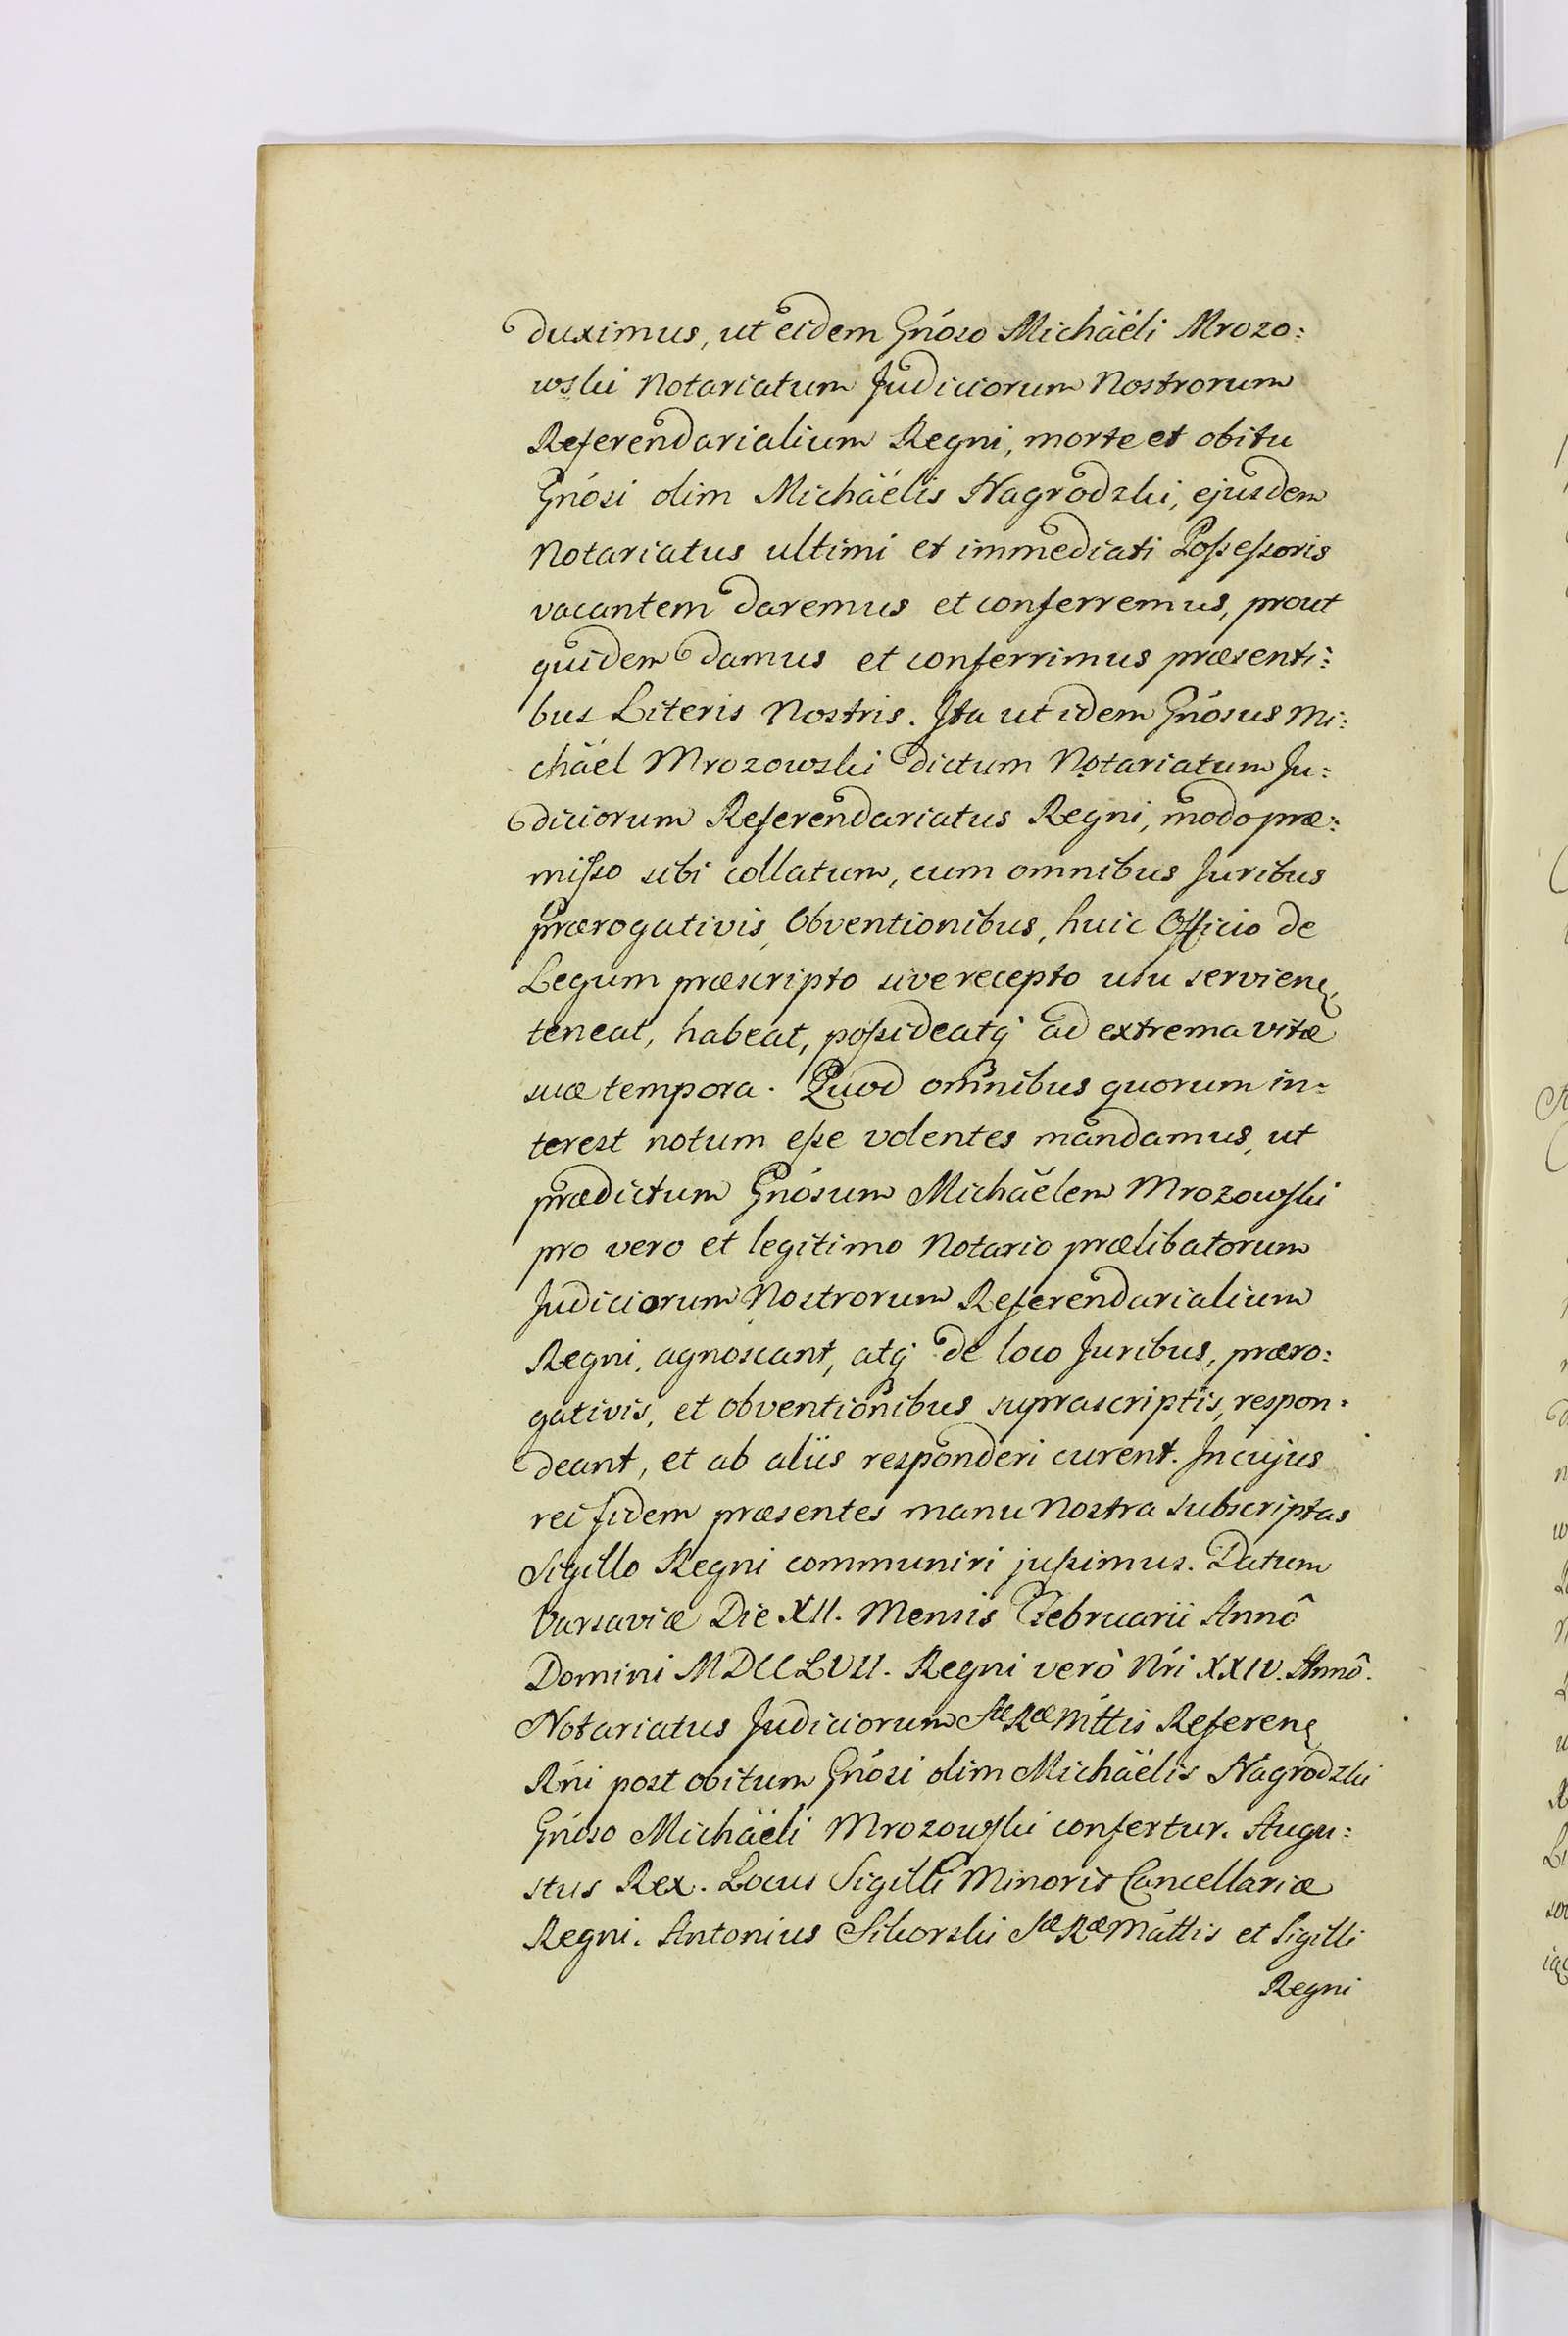 duximus, ut eidem Gńoso Michäéli Mrozo:
wski Notariatum Judiciorum Nostrorum
Referendarialium Regni, morte et obitu
Gńosi olim Michäélis Nagrodzki, ejusdem
Notariatus ultimi et immediati Possessoris
vacantem daremus et conferremus, prout
quidem damus et conferrimus præsenti:
bus Literis Nostris. Ita ut idem Gńosus Mi:
chäel Mrozowski dictum Notariatum Ju:
diciorum Referendariatus Regni, modo præ:
misso sibi collatum, cum omnibus Juribus
prærogativis, Obventionibus, huic Officio de
Legum præscripto sive recepto usu servienę
teneat, habeat, possideatq́ ad extrema vitæ
suæ tempora. Quod omnibus quorum in:
terest notum esse volentes mandamus, ut
prædictum Gńosum Michäelem Mrozowski
pro vero et legitimo Notario prælibatorum
Judiciorum Nostrorum Referendarialium
Regni, agnoscant, atq́ de loco Juribus, præro:
gativis, et obventionibus suprascriptis, respon:
deant, et ab aliis responderi curent. In cujus
rei fidem præsentes manu Nostra subscriptas
Sigillo Regni communiri jussimus. Datum
Varsaviæ Die XII. Mensis Februarii Annô
Domini MDCCLVII. Regni verò Nŕi XXIV. Annô.
Notariatus Judiciorum Sæ Ræ Mttis Referenę
Rńi post obitum Gńosi olim Michäelis Nagrodzki
Gńoso Michäeli Mrozowski confertur. Augu:
stus Rex. Locus Sigilli Minoris Cancellariæ
Regni. Antonius Sikorski Sæ Ræ Mattis et Sigilli
Regni